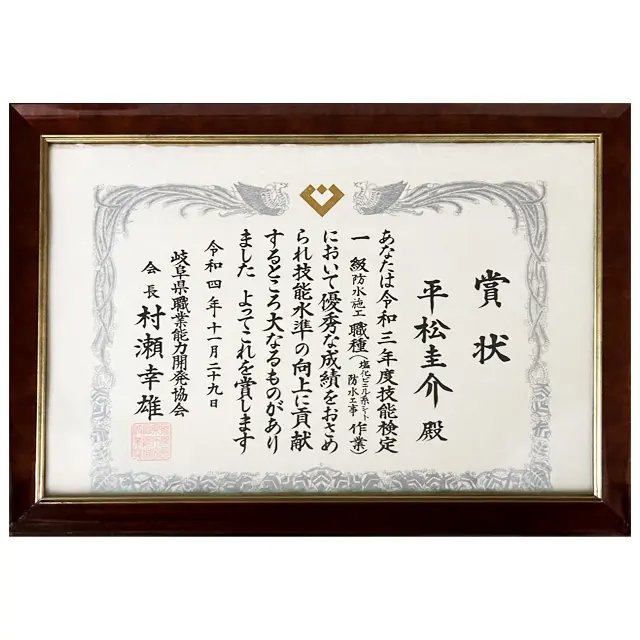 賞状
平松圭介 殿
あなたは令和三年度技能検定
一級防水施工職種(塩化ビニル系シート防水工事作業)
において優秀な成績をおさめ
られ技能水準の向上に貢献
するところ大なるものがあり
ました よってこれを賞します
令和四年十一月二十九日
岐阜県職業能力開発協会
会長 村瀬幸雄